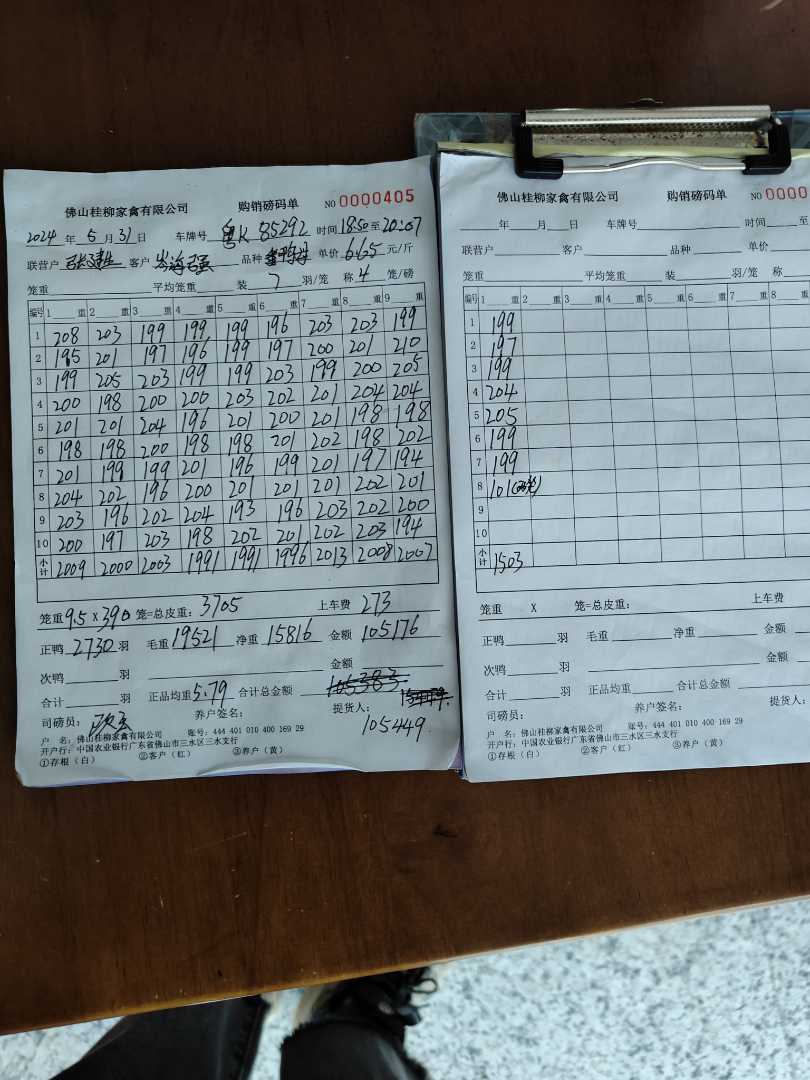 佛山桂柳家禽有限公司 购销磅码单 NO 0000405
2024 年 5 月 31 日 车牌号 粤K 85292 时间 18:50 至 20:07
联营户 客户 岑海强 品种 单价 6.65 元/斤
笼重 平均笼重 装 7 羽/笼 称 4 笼/磅
编号 1 重 2 重 3 重 4 重 5 重 6 重 7 重 8 重 9 重
1 208 203 199 199 199 196 203 203 199
2 195 201 197 196 199 197 200 201 210
3 199 205 203 199 199 203 199 200 205
4 200 198 200 200 203 202 201 204 204
5 201 201 204 196 201 200 201 198 198
6 198 198 200 198 198 201 202 198 202
7 201 199 199 201 196 199 201 197 194
8 204 202 196 200 201 201 201 202 201
9 203 196 202 204 193 196 203 202 200
10 200 197 203 198 202 201 202 203 194
小计 2009 2000 2003 1991 1991 1996 2013 2008 2007
笼重 9.5 X 390 笼=总皮重: 3705 上车费 273
正鸭 2730 羽 毛重 19521 净重 15816 金额 105176
次鸭 羽 金额
合计 羽 正品均重 5.79 合计总金额 105383
司磅员: 养户签名: 提货人:
105449.
户 名: 佛山桂柳家禽有限公司 账号: 444 401 010 400 169 29
开户行: 中国农业银行广东省佛山市三水区三水支行
①存根(白) ②客户(红) ③养户(黄)
佛山桂柳家禽有限公司 购销磅码单 NO 0000
年 月 日 车牌号 时间 至
联营户 客户 品种 单价
笼重 平均笼重 装 羽/笼 称
编号 1 重 2 重 3 重 4 重 5 重 6 重 7 重 8 重
1 199
2 197
3 199
4 204
5 205
6 199
7 199
8 101
9
10
小计 1503
笼重 X 笼=总皮重: 上车费
正鸭 羽 毛重 净重 金额
次鸭 羽 金额
合计 羽 正品均重 合计总金额
司磅员: 养户签名: 提货人:
户 名: 佛山桂柳家禽有限公司 账号: 444 401 010 400 169 29
开户行: 中国农业银行广东省佛山市三水区三水支行
①存根(白) ②客户(红) ③养户(黄)